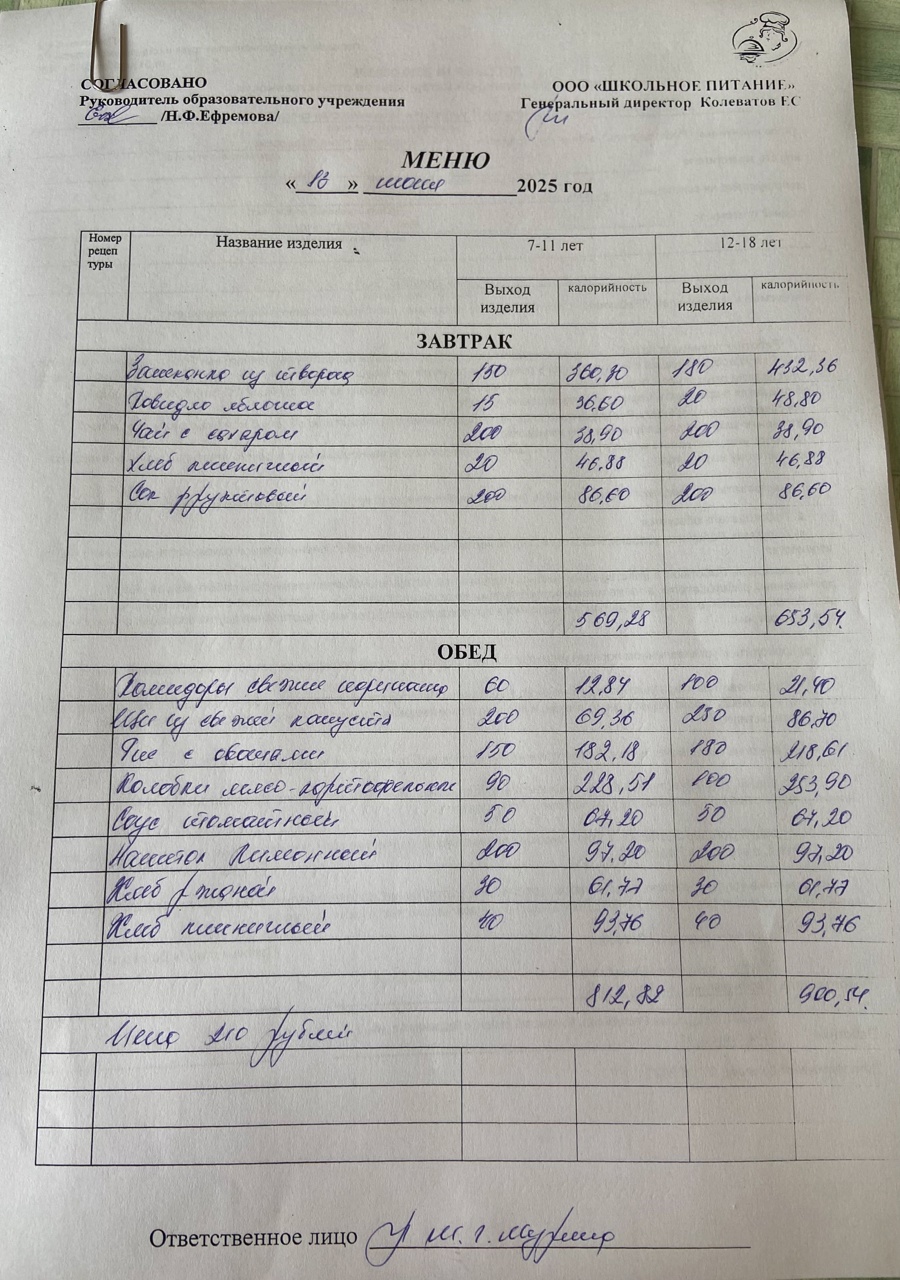 СОГЛАСОВАНО
Руководитель образовательного учреждения
/Н.Ф.Ефремова/
ООО «ШКОЛЬНОЕ ПИТАНИЕ»
Генеральный директор Колеватов ЕС
МЕНЮ
« 18 » июня 2025 год
Номер рецеп туры Название изделия 7-11 лет 12-18 лет
Выход изделия калорийность Выход изделия калорийность
ЗАВТРАК
Запеканка из творога 150 360,30 180 432,36
Повидло яблочное 15 36,60 20 48,80
Чай с сахаром 200 38,90 200 38,90
Хлеб пшеничный 20 46,88 20 46,88
Сок фруктовый 200 86,60 200 86,60
569,28 653,54
ОБЕД
Помидоры свежие порционно 60 12,84 100 21,40
Щи из свежей капусты 200 69,36 250 86,70
Рис с овощами 150 182,18 180 218,61
Колобки мясо-картофельные 90 228,51 100 253,90
Соус томатный 50 67,20 50 67,20
Напиток лимонный 200 97,20 200 97,20
Хлеб ржаной 30 61,77 30 61,77
Хлеб пшеничный 40 93,76 40 93,76
812,82 900,54
Цена 210 рублей
Ответственное лицо